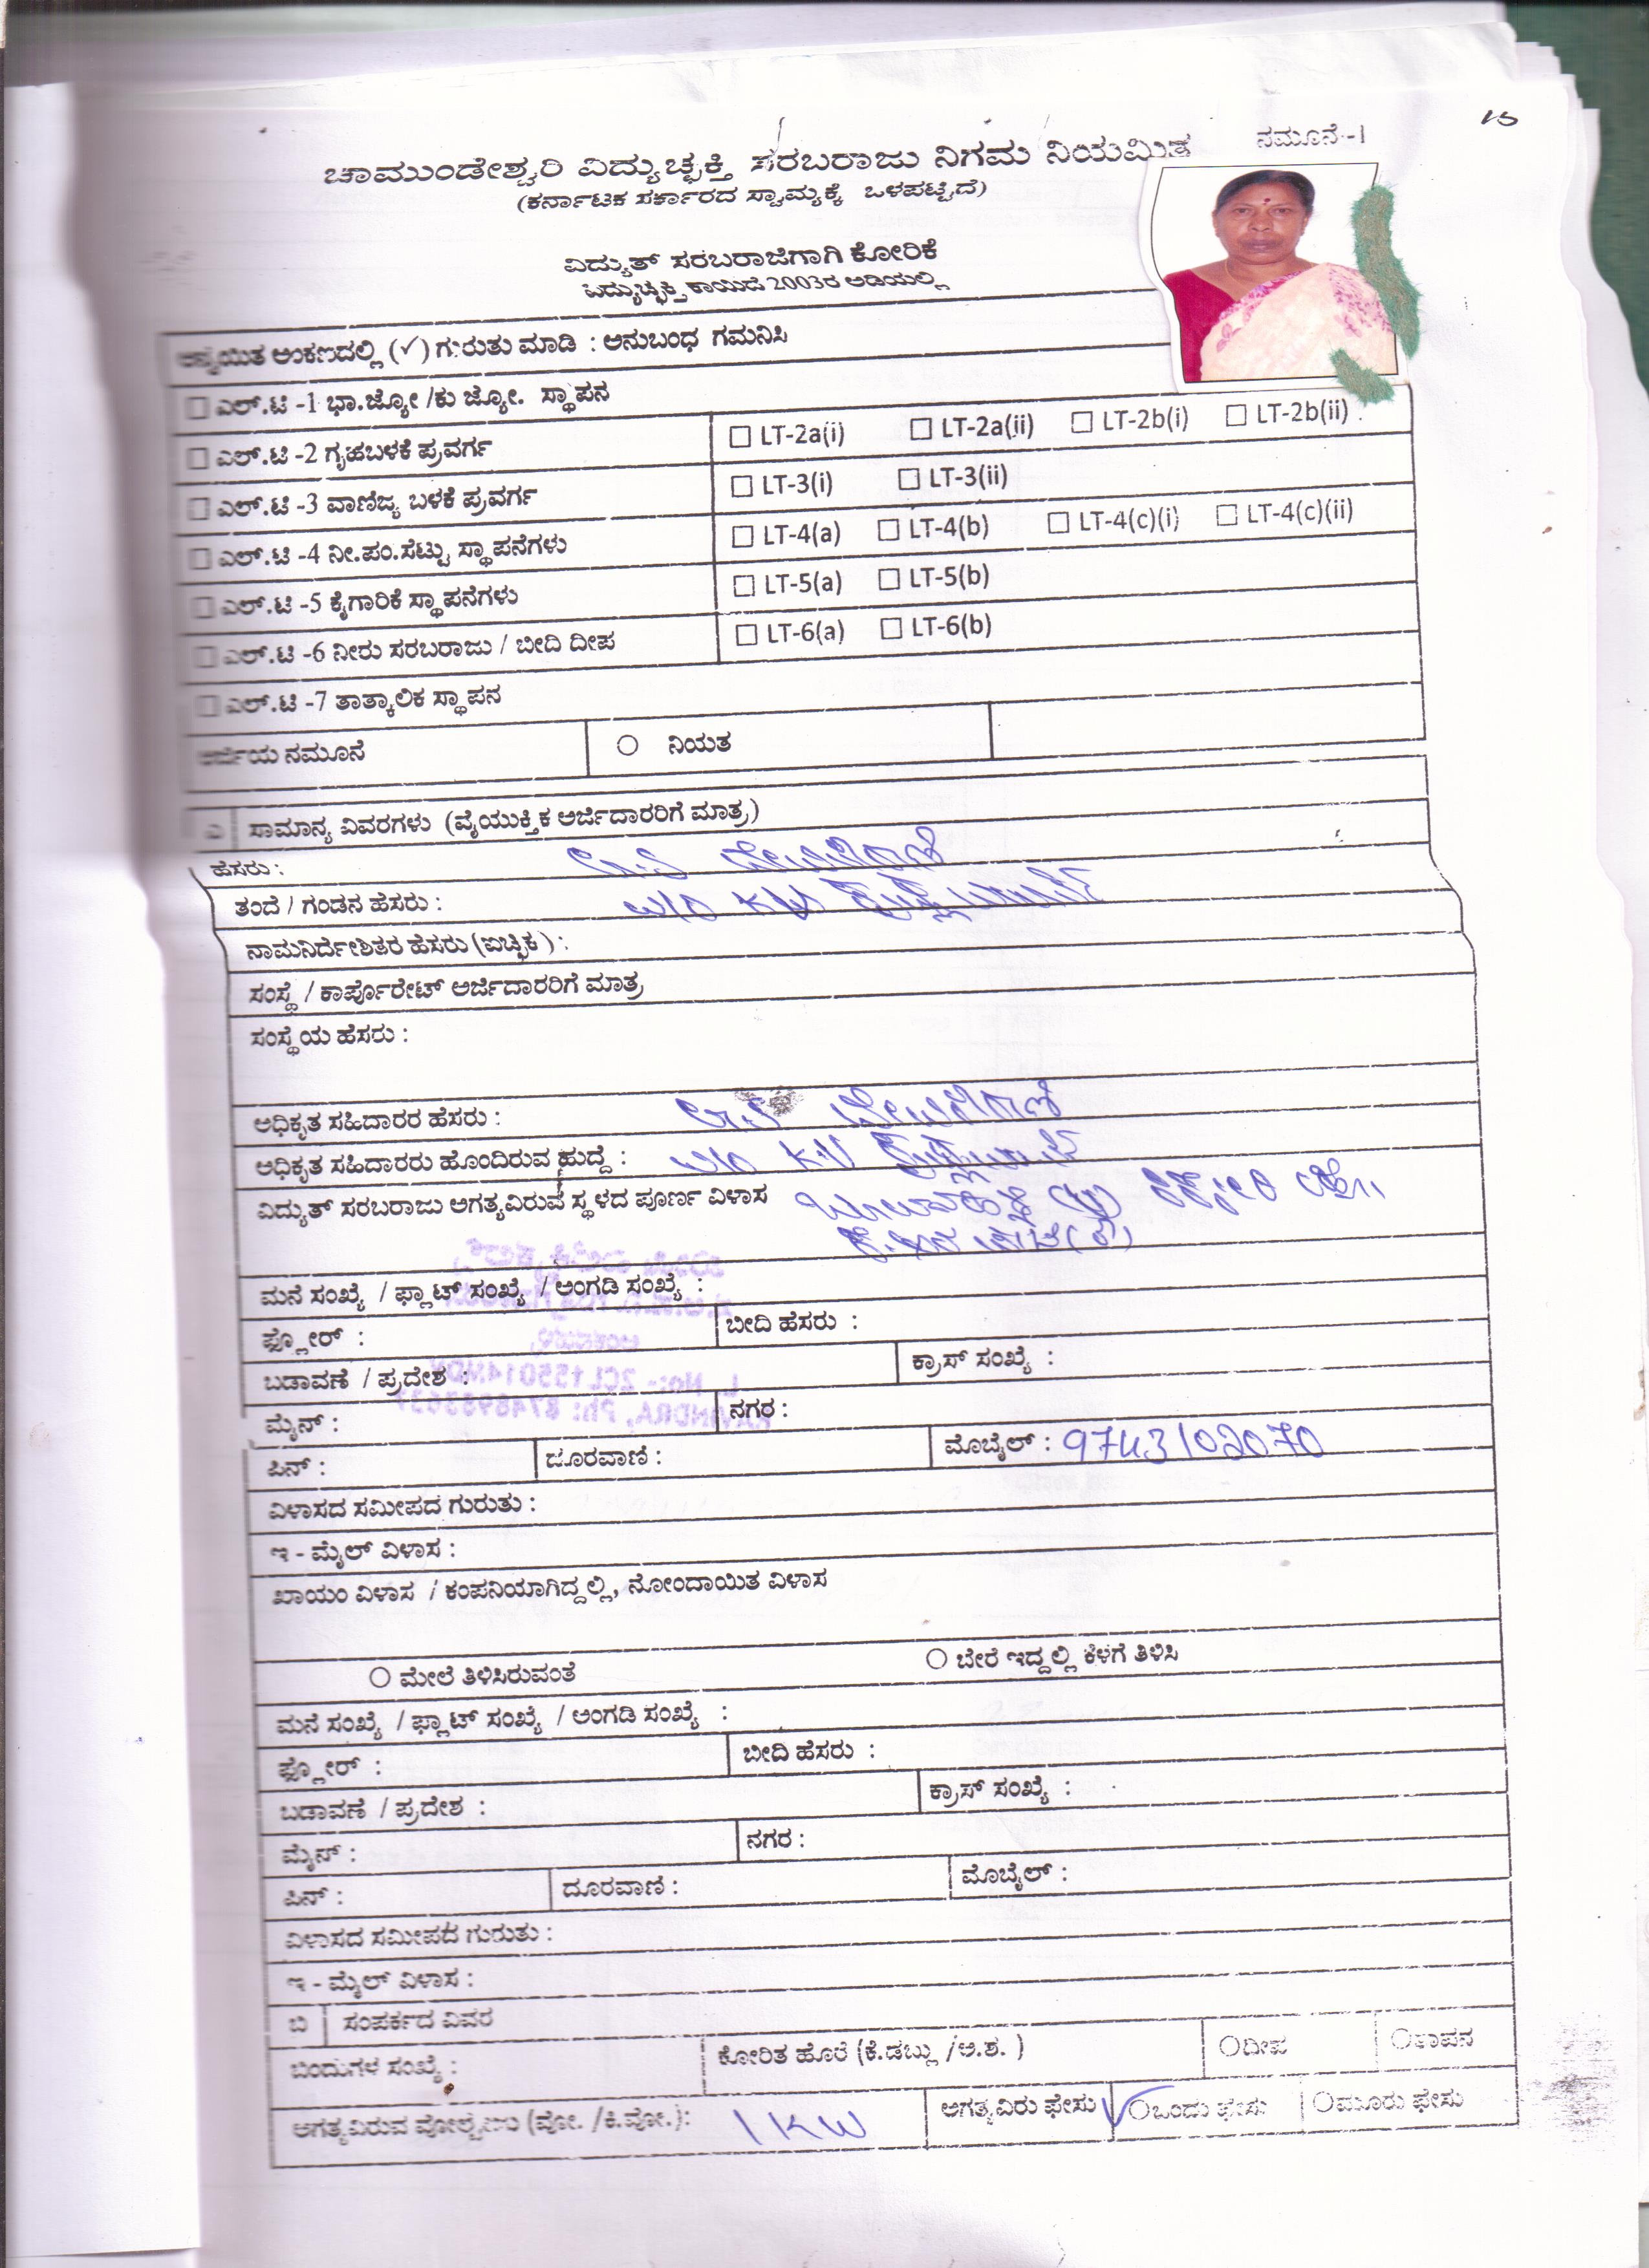 15
ನಮೂನೆ-1
ಚಾಮುಂಡೇಶ್ವರಿ ವಿದ್ಯುಚ್ಛಕ್ತಿ ಸರಬರಾಜು ನಿಗಮ ನಿಯಮಿತ
(ಕರ್ನಾಟಕ ಸರ್ಕಾರದ ಸ್ವಾಮ್ಯಕ್ಕೆ ಒಳಪಟ್ಟಿದೆ)
ವಿದ್ಯುತ್ ಸರಬರಾಜಿಗಾಗಿ ಕೋರಿಕೆ
ವಿದ್ಯುಚ್ಛಕ್ತಿ ಕಾಯಿದೆ 2003ರ ಅಡಿಯಲ್ಲಿ
ಅನ್ವಯಿತ ಅಂಕಣದಲ್ಲಿ (✓) ಗುರುತು ಮಾಡಿ : ಅನುಬಂಧ ಗಮನಿಸಿ
☐ ಎಲ್.ಟಿ -1 ಭಾ.ಜ್ಯೋ /ಕು ಜ್ಯೋ. ಸ್ಥಾಪನ
☐ ಎಲ್.ಟಿ -2 ಗೃಹಬಳಕೆ ಪ್ರವರ್ಗ ☐ LT-2a(i) ☐ LT-2a(ii) ☐ LT-2b(i) ☐ LT-2b(ii)
☐ ಎಲ್.ಟಿ -3 ವಾಣಿಜ್ಯ ಬಳಕೆ ಪ್ರವರ್ಗ ☐ LT-3(i) ☐ LT-3(ii)
☐ ಎಲ್.ಟಿ -4 ನೀ.ಪಂ.ಸೆಟ್ಟು ಸ್ಥಾಪನೆಗಳು ☐ LT-4(a) ☐ LT-4(b) ☐ LT-4(c)(i) ☐ LT-4(c)(ii)
☐ ಎಲ್.ಟಿ -5 ಕೈಗಾರಿಕೆ ಸ್ಥಾಪನೆಗಳು ☐ LT-5(a) ☐ LT-5(b)
☐ ಎಲ್.ಟಿ -6 ನೀರು ಸರಬರಾಜು / ಬೀದಿ ದೀಪ ☐ LT-6(a) ☐ LT-6(b)
☐ ಎಲ್.ಟಿ -7 ತಾತ್ಕಾಲಿಕ ಸ್ಥಾಪನ
ಅರ್ಜಿಯ ನಮೂನೆ ○ ನಿಯತ
ಎ ಸಾಮಾನ್ಯ ವಿವರಗಳು (ವೈಯುಕ್ತಿಕ ಅರ್ಜಿದಾರರಿಗೆ ಮಾತ್ರ)
ಹೆಸರು :
ತಂದೆ / ಗಂಡನ ಹೆಸರು : w/o KV
ನಾಮನಿರ್ದೇಶಿತರ ಹೆಸರು (ಐಚ್ಛಿಕ) :
ಸಂಸ್ಥೆ / ಕಾರ್ಪೊರೇಟ್ ಅರ್ಜಿದಾರರಿಗೆ ಮಾತ್ರ
ಸಂಸ್ಥೆಯ ಹೆಸರು :
ಅಧಿಕೃತ ಸಹಿದಾರರ ಹೆಸರು :
ಅಧಿಕೃತ ಸಹಿದಾರರು ಹೊಂದಿರುವ ಹುದ್ದೆ : w/o KV
ವಿದ್ಯುತ್ ಸರಬರಾಜು ಅಗತ್ಯವಿರುವ ಸ್ಥಳದ ಪೂರ್ಣ ವಿಳಾಸ
ಮನೆ ಸಂಖ್ಯೆ / ಫ್ಲಾಟ್ ಸಂಖ್ಯೆ / ಅಂಗಡಿ ಸಂಖ್ಯೆ :
ಫ್ಲೋರ್ : ಬೀದಿ ಹೆಸರು :
ಬಡಾವಣೆ / ಪ್ರದೇಶ : ಕ್ರಾಸ್ ಸಂಖ್ಯೆ :
ಮೈನ್ : ನಗರ :
ಪಿನ್ : ದೂರವಾಣಿ : ಮೊಬೈಲ್ : 9743102070
ವಿಳಾಸದ ಸಮೀಪದ ಗುರುತು :
ಇ - ಮೈಲ್ ವಿಳಾಸ :
ಖಾಯಂ ವಿಳಾಸ / ಕಂಪನಿಯಾಗಿದ್ದಲ್ಲಿ, ನೋಂದಾಯಿತ ವಿಳಾಸ
○ ಮೇಲೆ ತಿಳಿಸಿರುವಂತೆ ○ ಬೇರೆ ಇದ್ದಲ್ಲಿ ಕೆಳಗೆ ತಿಳಿಸಿ
ಮನೆ ಸಂಖ್ಯೆ / ಫ್ಲಾಟ್ ಸಂಖ್ಯೆ / ಅಂಗಡಿ ಸಂಖ್ಯೆ :
ಫ್ಲೋರ್ : ಬೀದಿ ಹೆಸರು :
ಬಡಾವಣೆ / ಪ್ರದೇಶ : ಕ್ರಾಸ್ ಸಂಖ್ಯೆ :
ಮೈನ್ : ನಗರ :
ಪಿನ್ : ದೂರವಾಣಿ : ಮೊಬೈಲ್ :
ವಿಳಾಸದ ಸಮೀಪದ ಗುರುತು :
ಇ - ಮೈಲ್ ವಿಳಾಸ :
ಬಿ ಸಂಪರ್ಕದ ವಿವರ
ಬಿಂದುಗಳ ಸಂಖ್ಯೆ : ಕೋರಿತ ಹೊರೆ (ಕೆ.ಡಬ್ಲು /ಅ.ಶ. ) ○ದೀಪ ○ತಾಪನ
ಅಗತ್ಯವಿರುವ ವೋಲ್ಟೇಜು (ವೋ. /ಕಿ.ವೋ.): 1 KW ಅಗತ್ಯವಿರು ಫೇಸು ✓ ○ಒಂದು ಫೇಸು ○ಮೂರು ಫೇಸು